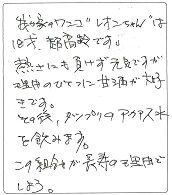 我が家のワンコ"レオンちゃん"は
18才、超高齢です。
熱さにも負けず元気ですが
理由のひとつに甘酒が大好
きです。
その後、ダンプリのアクアス水
を飲みます。
この組合せが長寿の理由で
しょう。